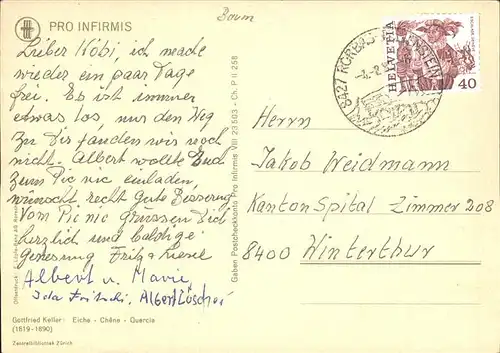 PRO INFIRMIS
Baum
Lieber Köbi, ich mache
wieder ein paar Tage
frei. Es ist immer
etwas los, nur den Weg
zu Dir fanden wir noch
nicht. Albert wollte Euch
zum Pic nic einladen,
wünscht recht Gute Besserung
Vom Pic nic grüssen Dich
herzlich und baldige
Genesung Fritz + Liesel
Albert u. Marie
Ida Fritschi, Albert Löscher
Gottfried Keller: Eiche - Chêne - Quercia
(1819-1890)
Zentralbibliothek Zürich
Gaben Postcheckkonto Pro Infirmis VIII 23 503 - Ch. P II 258
8427 RORBAS
HELVETIA
40
Herrn
Jakob Weidmann
Kanton Spital Zimmer 208
8400 Winterthur